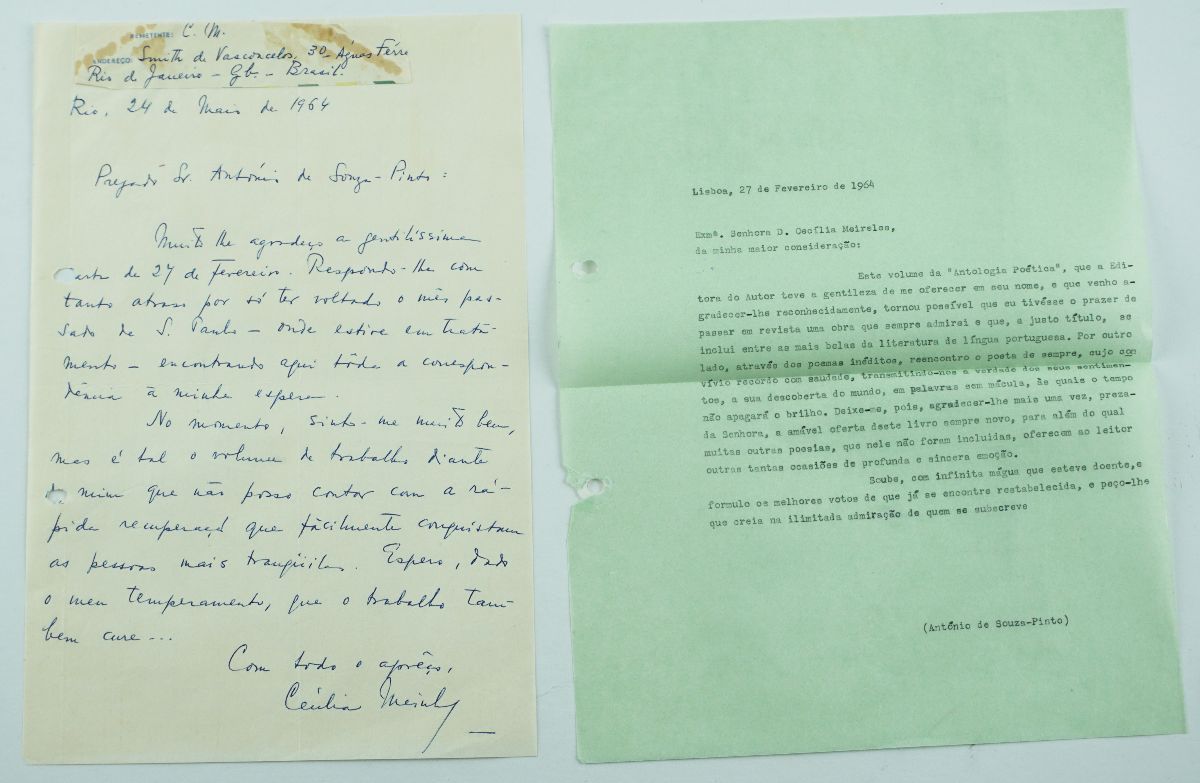 REMETENTE: C. M.
ENDEREÇO: Smith de Vasconcelos, 30 - Águas Férreas
Rio de Janeiro - Gb. - Brasil.
Rio, 24 de Maio de 1964
Prezado Sr. António de Souza-Pinto:
Muito lhe agradeço a gentilíssima
carta de 27 de fevereiro. Respondo-lhe com
tanto atraso por só ter voltado o mês pas-
sado de S. Paulo - onde estive em trata-
mento - encontrando aqui tôda a correspon-
dência à minha espera.
No momento, sinto-me muito bem,
mas é tal o volume de trabalho diante
de mim que não posso contar com a rá-
pida recuperação que fàcilmente conquistam
as pessoas mais tranqüilas. Espero, dado
o meu temperamento, que o trabalho tam
bem cure...
Com todo o aprêço,
Cecília Meireles
Lisboa, 27 de Fevereiro de 1964
Exmª. Senhora D. Cecília Meireles,
da minha maior consideração:
Este volume da "Antologia Poética", que a Edi-
tora do Autor teve a gentileza de me oferecer em seu nome, e que venho a-
gradecer-lhe reconhecidamente, tornou possível que eu tivésse o prazer de
passar em revista uma obra que sempre admirei e que, a justo título, se
inclui entre as mais belas da literatura de língua portuguesa. Por outro
lado, através dos poemas inéditos, reencontro o poeta de sempre, cujo con
vívio recordo com saudade, transmitindo-nos a verdade dos seus sentimen-
tos, a sua descoberta do mundo, em palavras sem mácula, às quais o tempo
não apagará o brilho. Deixe-me, pois, agradecer-lhe mais uma vez, preza-
da Senhora, a amável oferta deste livro sempre novo, para além do qual
muitas outras poesias, que nele não foram incluidas, oferecem ao leitor
outras tantas ocasiões de profunda e sincera emoção.
Soube, com infinita mágua que esteve doente,e
formulo os melhores votos de que já se encontre restabelecida, e peço-lhe
que creia na ilimitada admiração de quem se subscreve
(António de Souza-Pinto)